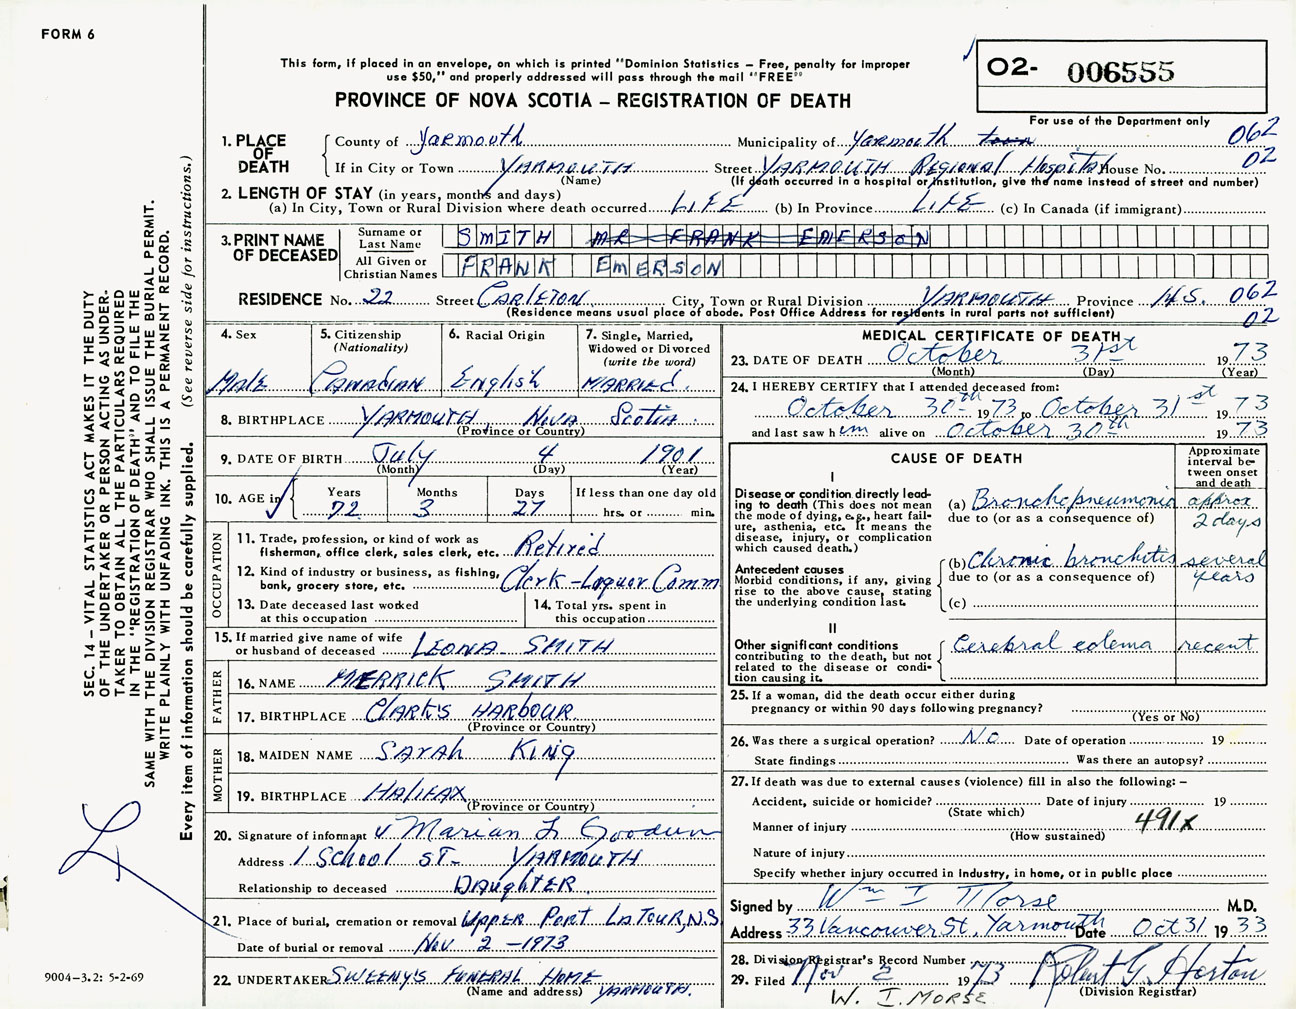 FORM 6
This form, if placed in an envelope, on which is printed "Dominion Statistics – Free, penalty for improper
use $50," and properly addressed will pass through the mail "FREE"
PROVINCE OF NOVA SCOTIA – REGISTRATION OF DEATH
O2- 006555
For use of the Department only
1. PLACE OF DEATH
County of Yarmouth Municipality of Yarmouth town 062
If in City or Town YARMOUTH Street YARMOUTH Regional Hospital House No. 02
(Name) (If death occurred in a hospital or institution, give the name instead of street and number)
2. LENGTH OF STAY (in years, months and days)
(a) In City, Town or Rural Division where death occurred LIFE (b) In Province LIFE (c) In Canada (if immigrant)
3. PRINT NAME OF DECEASED
Surname or Last Name SMITH MR FRANK EMERSON
All Given or Christian Names FRANK EMERSON
RESIDENCE No. 22 Street CARLETON City, Town or Rural Division YARMOUTH Province N.S. 062
(Residence means usual place of abode. Post Office Address for residents in rural parts not sufficient) 02
4. Sex
Male
5. Citizenship
(Nationality)
CANADIAN
6. Racial Origin
English
7. Single, Married,
Widowed or Divorced
(write the word)
MARRIED.
8. BIRTHPLACE YARMOUTH Nova Scotia
(Province or Country)
9. DATE OF BIRTH July 4 1901
(Month) (Day) (Year)
10. AGE in
Years Months Days If less than one day old
72 3 27 hrs. or min.
OCCUPATION
11. Trade, profession, or kind of work as
fisherman, office clerk, sales clerk, etc. Retired
12. Kind of industry or business, as fishing,
bank, grocery store, etc. Clerk - Loquor Comm
13. Date deceased last worked
at this occupation
14. Total yrs. spent in
this occupation
15. If married give name of wife
or husband of deceased LEONA SMITH
FATHER
16. NAME MERRICK SMITH
17. BIRTHPLACE CLARK'S HARBOUR
(Province or Country)
MOTHER
18. MAIDEN NAME SARAH KING
19. BIRTHPLACE HALIFAX
(Province or Country)
20. Signature of informant Marian L Goodwin
Address 1 School ST- YARMOUTH
Relationship to deceased DAUGHTER.
21. Place of burial, cremation or removal UPPER PORT LATOUR, N.S.
Date of burial or removal Nov 2 -1973
22. UNDERTAKER SWEENY'S FUNERAL HOME
(Name and address) YARMOUTH.
MEDICAL CERTIFICATE OF DEATH
23. DATE OF DEATH October 31st 1973
(Month) (Day) (Year)
24. I HEREBY CERTIFY that I attended deceased from:
October 30th 1973 to October 31st 1973
and last saw him alive on October 30th 1973
CAUSE OF DEATH
Approximate
interval be-
tween onset
and death
I
Disease or condition directly lead-
ing to death (This does not mean
the mode of dying, e.g., heart fail-
ure, asthenia, etc. It means the
disease, injury, or complication
which caused death.)
(a) Bronchopneumonia approx
due to (or as a consequence of) 2 days
Antecedent causes
Morbid conditions, if any, giving
rise to the above cause, stating
the underlying condition last.
(b) Chronic bronchitis several
due to (or as a consequence of) years
(c)
II
Other significant conditions
contributing to the death, but not
related to the disease or condi-
tion causing it.
Cerebral edema recent
25. If a woman, did the death occur either during
pregnancy or within 90 days following pregnancy?
(Yes or No)
26. Was there a surgical operation? No Date of operation 19
State findings Was there an autopsy?
27. If death was due to external causes (violence) fill in also the following: –
Accident, suicide or homicide? Date of injury 19
(State which)
Manner of injury 491x
(How sustained)
Nature of injury
Specify whether injury occurred in industry, in home, or in public place
Signed by Wm I Morse M.D.
Address 33 Vancouver St. Yarmouth Date Oct 31 1933
28. Division Registrar's Record Number
29. Filed Nov 2 1973 Robert G. Horton
(Division Registrar)
W. I. MORSE
SEC. 14 – VITAL STATISTICS ACT MAKES IT THE DUTY
OF THE UNDERTAKER OR PERSON ACTING AS UNDER-
TAKER TO OBTAIN ALL THE PARTICULARS REQUIRED
IN THE "REGISTRATION OF DEATH" AND TO FILE THE
SAME WITH THE DIVISION REGISTRAR WHO SHALL ISSUE THE BURIAL PERMIT.
WRITE PLAINLY WITH UNFADING INK. THIS IS A PERMANENT RECORD.
Every item of information should be carefully supplied. (See reverse side for instructions.)
9004-3.2: 5-2-69